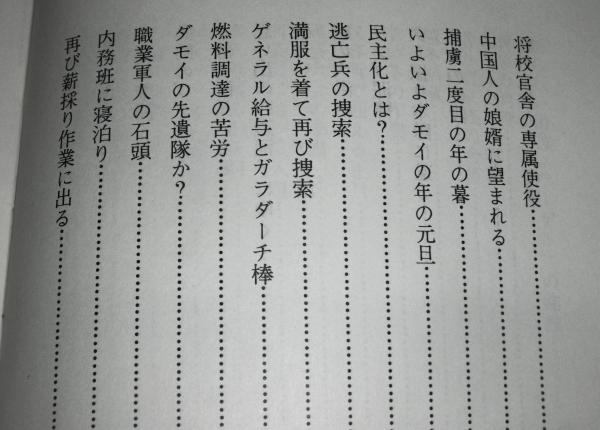 将校官舎の専属使役………………
中国人の娘婿に望まれる………………
捕虜二度目の年の暮………………
いよいよダモイの年の元旦………………
民主化とは？………………
逃亡兵の捜索………………
満服を着て再び捜索………………
ゲネラル給与とガラダーチ棒………………
燃料調達の苦労………………
ダモイの先遺隊か？………………
職業軍人の石頭………………
内務班に寝泊り………………
再び薪採り作業に出る………………